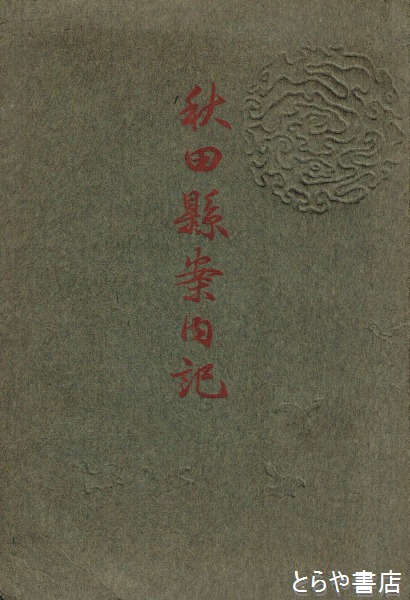 秋田縣案内記
とらや書店